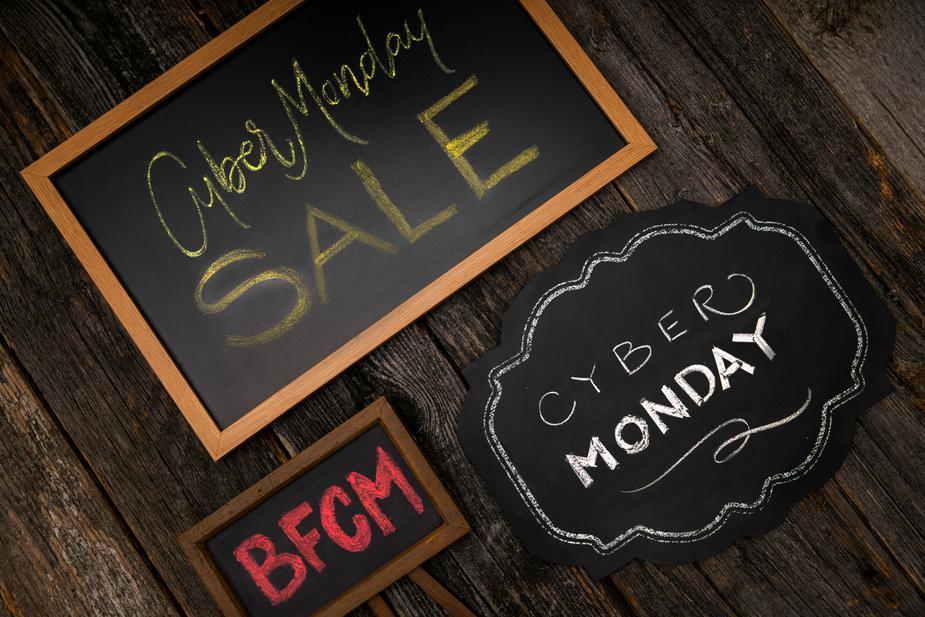 Cyber Monday
SALE
CYBER
MONDAY
BFCM